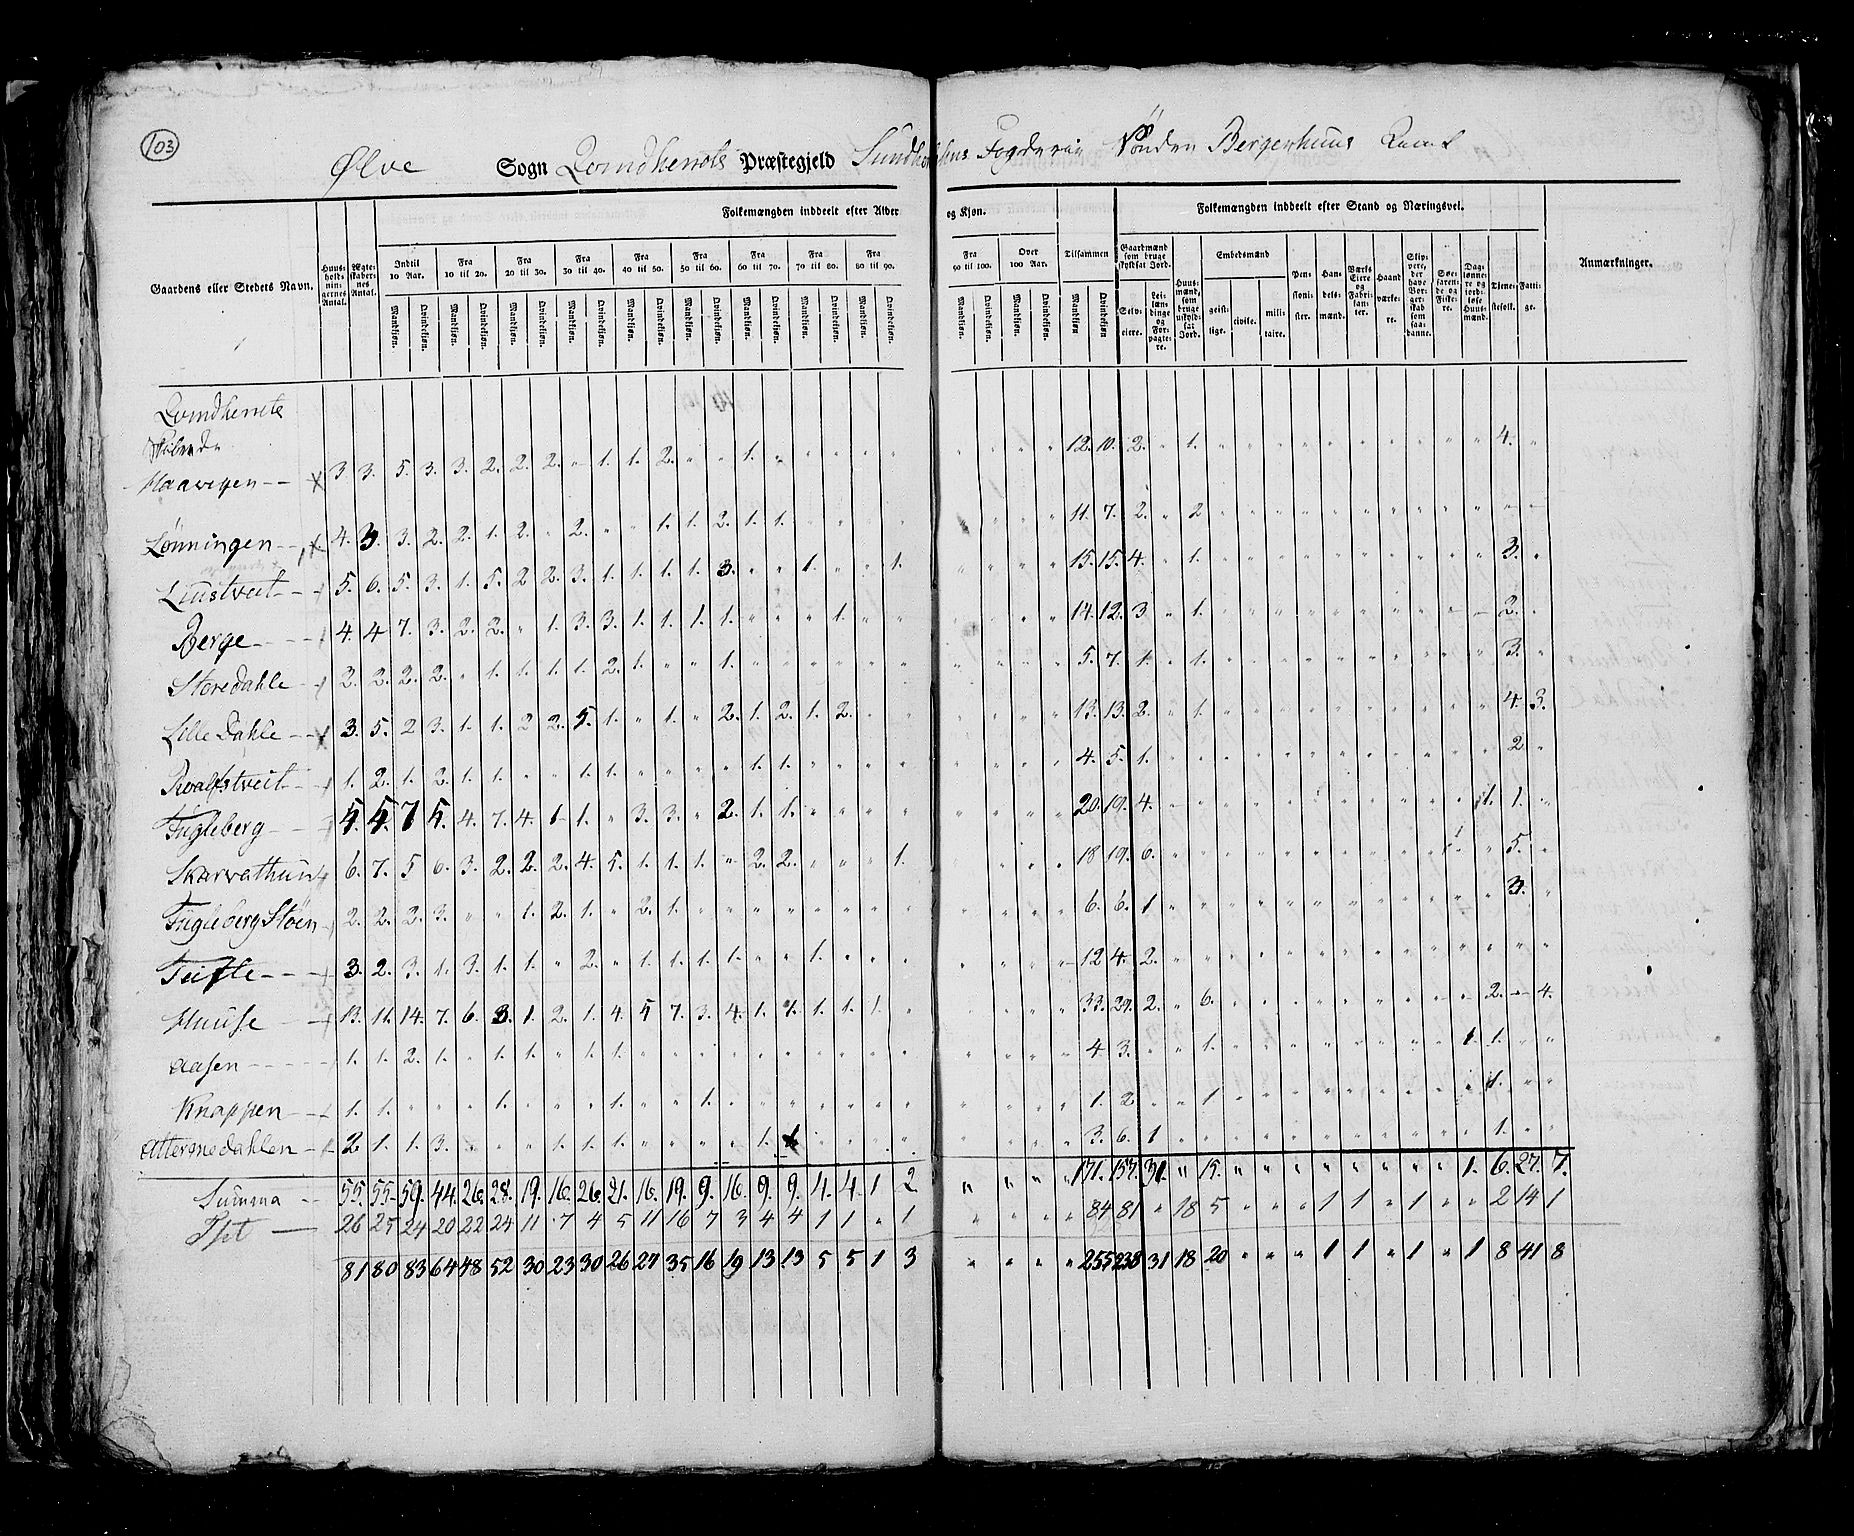 103
Ølve Sogn Qvindherrets Præstegjeld Sundhordlens Fogderie Sönder Bergenhuus Amt
Folkemængden inddeelt efter Alder og Kjøn.
Folkemængden inddeelt efter Stand og Næringsvei.
Gaardens eller Stedets Navn.
Huus-holdnin-gernes Antal.
Ægte-skaber-nes Antal.
Indtil 10 Aar.
Fra 10 til 20.
Fra 20 til 30.
Fra 30 til 40.
Fra 40 til 50.
Fra 50 til 60.
Fra 60 til 70.
Fra 70 til 80.
Fra 80 til 90.
Fra 90 til 100.
Over 100 Aar.
Tilsammen
Mandkjøn. Qvindekjøn.
Gaardmænd som bruge skyldsat Jord.
Selv-eiere.
Lei-læn-dinge og For-pagte-re.
Huus-mænd, som bruge uskyld-sat Jord.
Embedsmænd
geist-lige.
civile.
mili-taire.
Pen-sioni-ster.
Han-dels-mænd.
Værks Eiere og Fabri-kan-ter.
Haand værke-re.
Slip-pere, der have Bor-ger-skab som saa-danne.
Søe-farende og Fiske-re.
Dag-lønne-re og jord-løse Huus-mænd.
Tjene-stefolk.
Fatti-ge.
Anmærkninger.
Qvindherrets
Skibrede
Haavigen 3 3. 5. 3. 3. 2. 2. 2. " 1. 1. 2. " " 1. " " " " " " " " " 12. 10. 2. " 1. 4.
Lönningen 4. 3. 3. 2. 2. 1. 2. " 2. " " 1. 1. 2. 1. 1. 11. 7. 2. " 2
Liustveit 5. 6. 5. 3. 1. 5. 2 2. 3. 1. 1. 1. 1. 3. " " 1. " " 1. 15. 15. 4. " 1. 3.
Berge 4. 4 7. 3. 2. 2. " 1. 3. 3. 1. 1. 1. 1. " " " 1. 14. 12. 3 " 1. 2.
Storedahle 2. 2. 2. 2. " 1. 1. 1. 1. 2. 1. " " 1. 5. 7. 1. " 1. 3.
Lille Dahle 3. 5. 2 3. 1. 1. 2 2. 5. 1. " 1. " 2. 1. 2. 1. 2. 13. 13. 2. " 1. 4. 3.
Roalfstveit 1. 2. 1. 2. 1. 1. " " 1. 1. " " " " 1. 1. 4. 5. 1. 2
Fugleberg 5. 5. 7 5. 4. 7. 4. 1 1. " 3. 3. " 2. 1. 1. 20. 19. 4. 1. 1.
Skarvathun 6. 7. 5 6. 3. 2. 2. 2. 4. 5. 1. 1. 1. " 2. 2. " " " 1. 18 19. 6. 1 5.
Fugleberg Stöen 2. 2. 2. 3. " " 1. 2. 1. " 2. 1. 6. 6. 1 3.
Tufte 3. 2. 3. 1. 3. 1. 1. " 2. " 1. 1. 1. 1. " " 1. 12 4. 2.
Huuse 13. 11. 14. 7. 6. 3. 1. 2. 1. 4. 5 7. 3. 4. 1. 1. 1. 1. 1 33. 29. 2. " 6. 2. 4.
Aasen 1. 1. 2. 1. " 1. 1. " 1. 1. 4 3. " " 1. 1. 1.
Knappen 1. 1. " " " 1. " " " 1. " " 1. 1. 2 " " 1 1.
Attermedahlen 2 1. 1. 3. " " " 1. 1. 1. " " " " 1. 1 3. 6. 1 1.
Summa 55. 55. 59. 44. 26. 28. 19. 16. 26. 21. 16. 19. 9. 16. 9. 9. 4. 4. 1 2 " " " " 171. 157. 31. " 15. " " " " " " " " " 1. 6. 27. 7.
26 25 24 20 22 24 11 7 4 5 11 16 7 3 4 4 1 1 " 1 " " " " 84 81 " 18 5 " " " 1 1 " 1 " " 2 14 1
81 80 83 64 48 52 30 23 30 26 27 35 16 19 13 13 5 5 1 3 " " " " 255 238 31 18 20 " " " 1 1 " 1 " 1 8 41 8